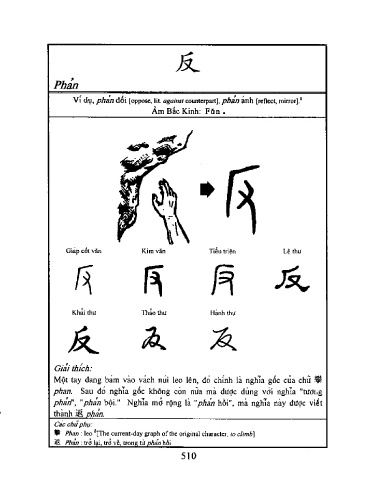 反
Phản
Ví dụ, phản đối [oppose, lit. against counterpart], phản ánh [reflect, mirror].⁸
Âm Bắc Kinh: Făn .
Giáp cốt văn Kim văn Tiểu triện Lệ thư
反 反 反 反
Khải thư Thảo thư Hành thư
反 反 反
Giải thích:
Một tay đang bám vào vách núi leo lên, đó chính là nghĩa gốc của chữ 攀
phan. Sau đó nghĩa gốc không còn nữa mà được dùng với nghĩa "tương
phản", "phản bội." Nghĩa mở rộng là "phản hồi", mà nghĩa này được viết
thành 返 phản.
Các chữ phụ:
攀 Phan : leo [The current-day graph of the original character, to climb]
返 Phản : trở lại, trở về, trong từ phản hồi
510